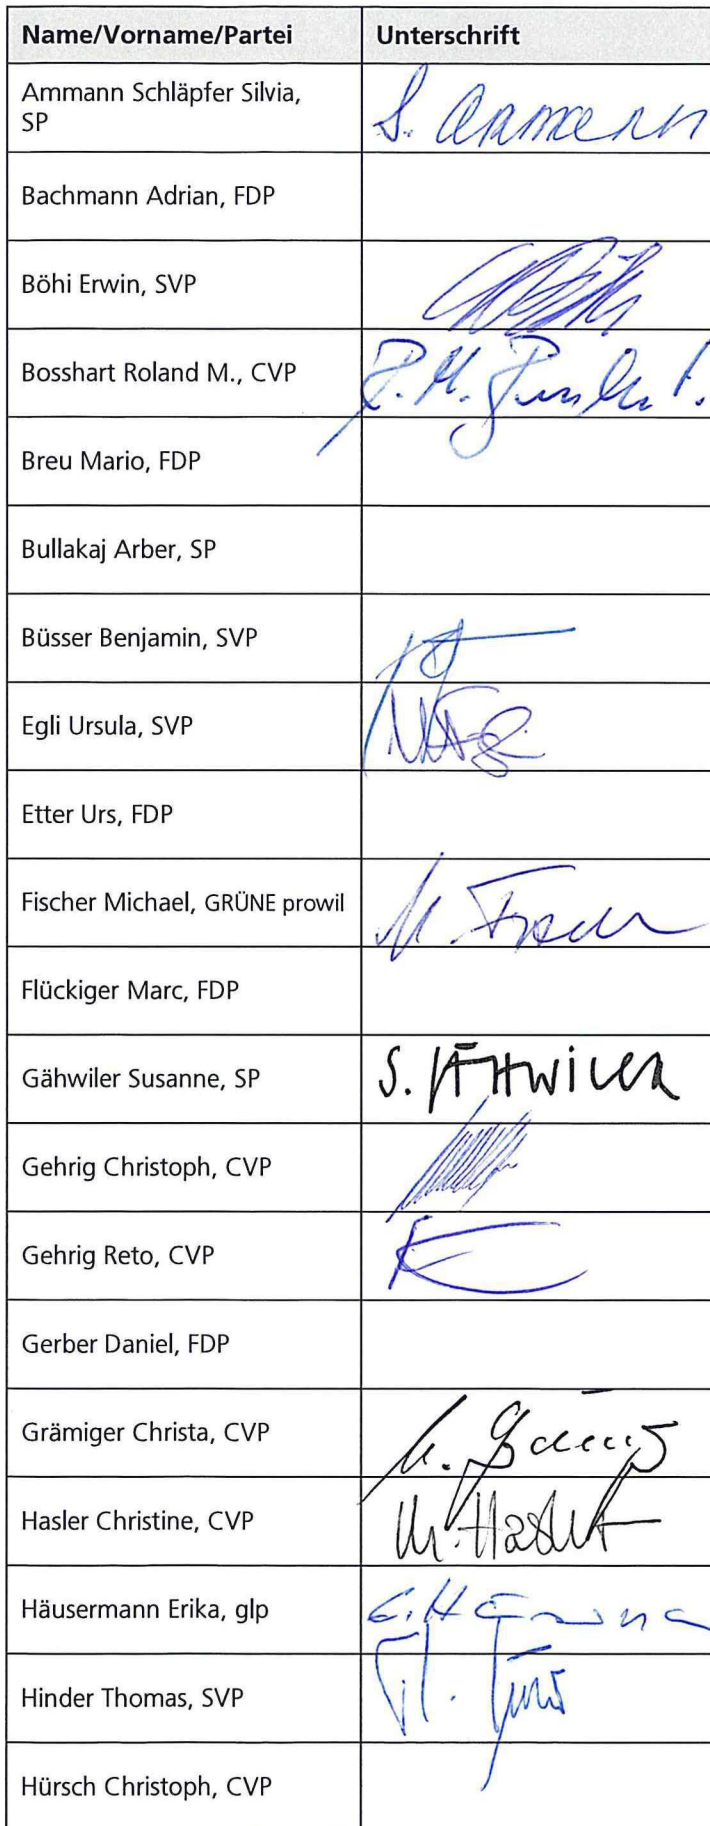 Name/Vorname/Partei Unterschrift
Ammann Schläpfer Silvia, S. Ammann
SP
Bachmann Adrian, FDP
Böhi Erwin, SVP
Bosshart Roland M., CVP R. M.
Breu Mario, FDP
Bullakaj Arber, SP
Büsser Benjamin, SVP
Egli Ursula, SVP
Etter Urs, FDP
Fischer Michael, GRÜNE prowil M. Fischer
Flückiger Marc, FDP
Gähwiler Susanne, SP S. GÄHWiLER
Gehrig Christoph, CVP
Gehrig Reto, CVP
Gerber Daniel, FDP
Grämiger Christa, CVP
Hasler Christine, CVP Ch. Hasler
Häusermann Erika, glp E. H
Hinder Thomas, SVP
Hürsch Christoph, CVP